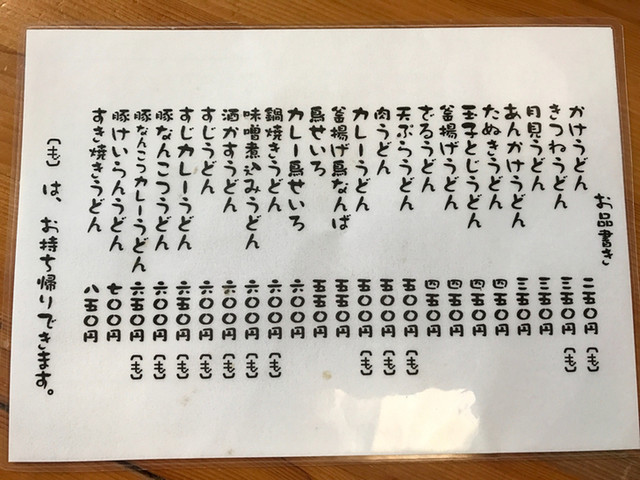 お品書き
かけうどん 二五〇円〔も〕
きつねうどん 三五〇円〔も〕
月見うどん 三五〇円
あんかけうどん 三五〇円
たぬきうどん 四五〇円
玉子とじうどん 四五〇円
釜揚げうどん 四五〇円
ざるうどん 四五〇円
天ぷらうどん 五〇〇円〔も〕
肉うどん 五〇〇円〔も〕
カレーうどん 五〇〇円〔も〕
釜揚げ鳥なんば 五五〇円
鳥せいろ 五五〇円
カレー鳥せいろ 六〇〇円
鍋焼きうどん 六〇〇円〔も〕
味噌煮込みうどん 六〇〇円〔も〕
酒かすうどん 六〇〇円〔も〕
すじうどん 六〇〇円〔も〕
すじカレーうどん 六五〇円〔も〕
豚なんこつうどん 六〇〇円〔も〕
豚なんこつカレーうどん 六五〇円〔も〕
豚けいらんうどん 七〇〇円
すき焼きうどん 八五〇円
〔も〕は、お持ち帰りできます。